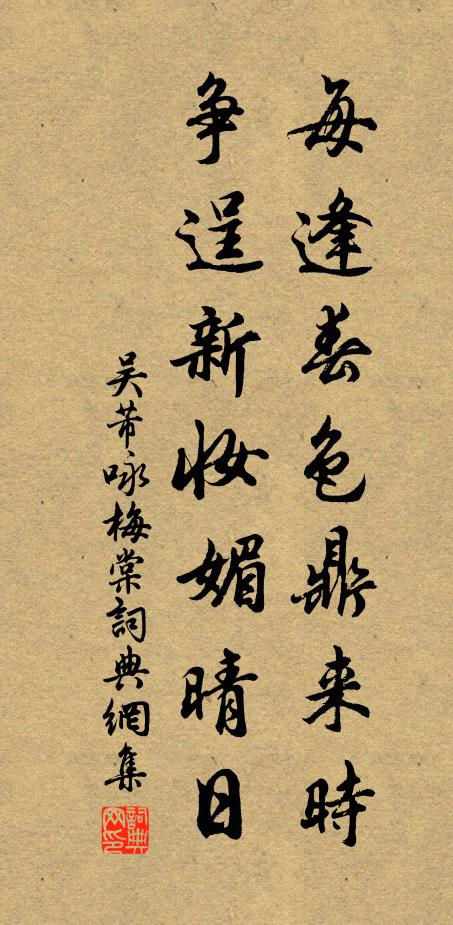 每逢春色鼎来時
争逞新妆媚晴日
吴芾咏梅棠詞典網集
詞典网印